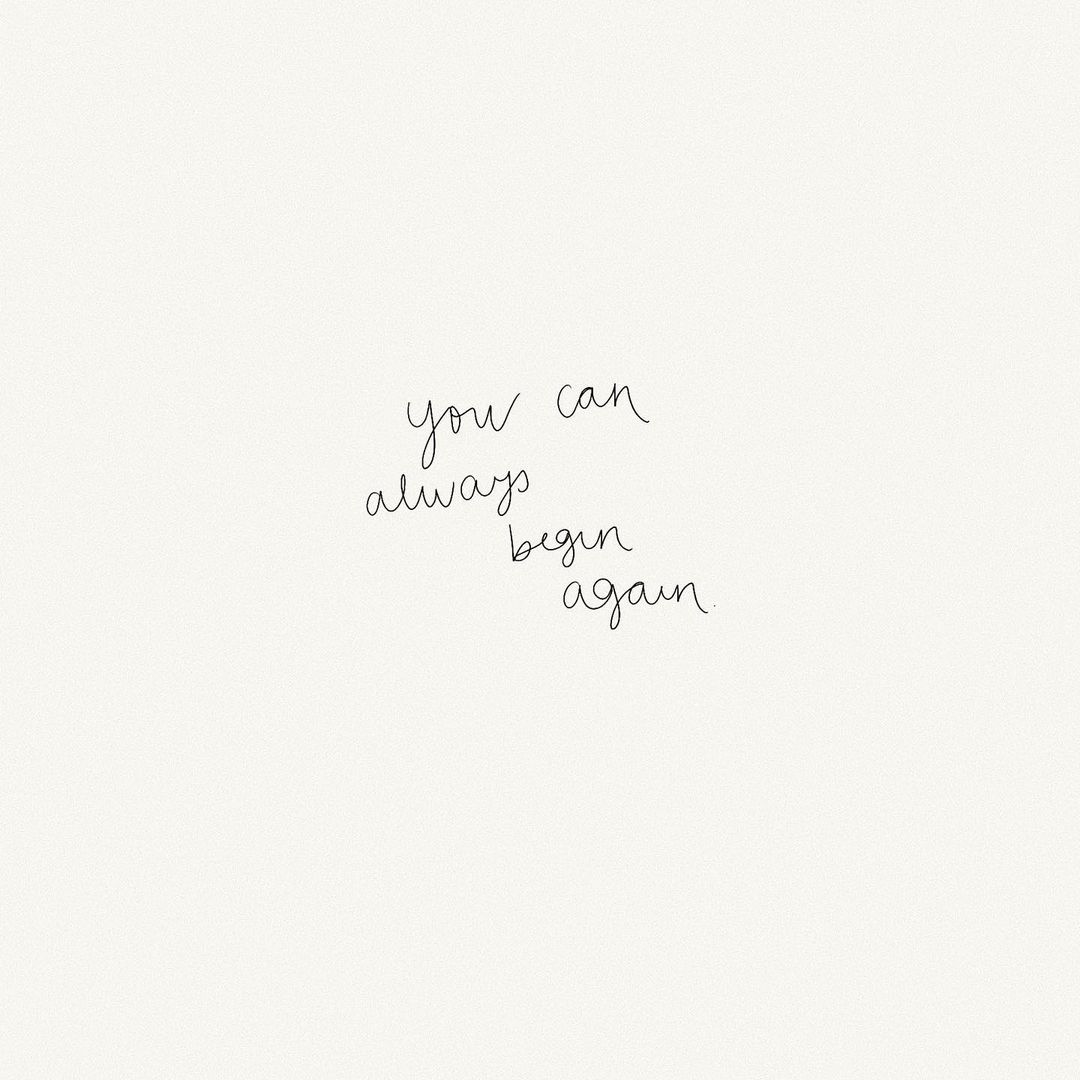 you can
always
begin
again.